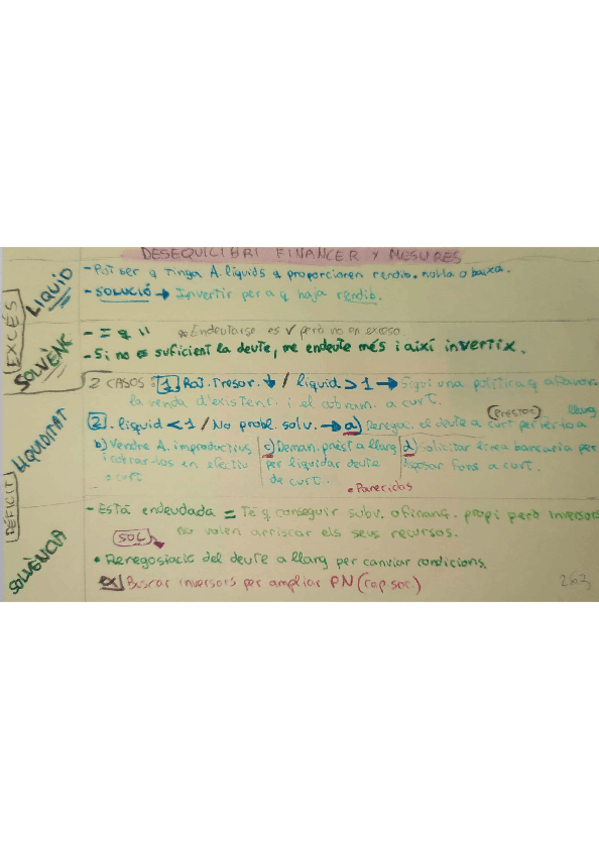 DESEQUILIBRI FINANCER Y MESURES
EXCÉS
LIQUID
- Pot ser q tinga A. líquids q proporcionen rendib. nul·la o baixa.
- SOLUCIÓ → Invertir per a q haja rendib.
SOLVÈNC
- = q " *Endeutarse es √ però no en exceso.
- Si no es suficient la deute, me endeute més i així invertix.
DÉFICIT
LIQUIDITAT
2 CASOS: 1 Rat. Tresor. ↓ / liquid. > 1 → Sigui una política q afavor.
la venda d'existenc. i el cobram. a curt.
(Prestos) llarg
2. liquid < 1 / No probl. solv. → a) Renegoc. el deute a curt per fer-lo a
b) Vendre A. improductius
i cobrar-los en efectiu
a curt
c) Deman. prèst a llarg
per liquidar deute
de curt.
d) Solicitar línea bancaria per
disposar fons a curt.
• Parecidas
SOLVÈNCIA
- Està endeudada = Té q conseguir subv. o finanç. propi però inversors
no volen arriscar els seus recursos.
SOL
• Renegosiació del deute a llarg per canviar condicions.
ex) Buscar inversors per ampliar PN (cap soc.)
263